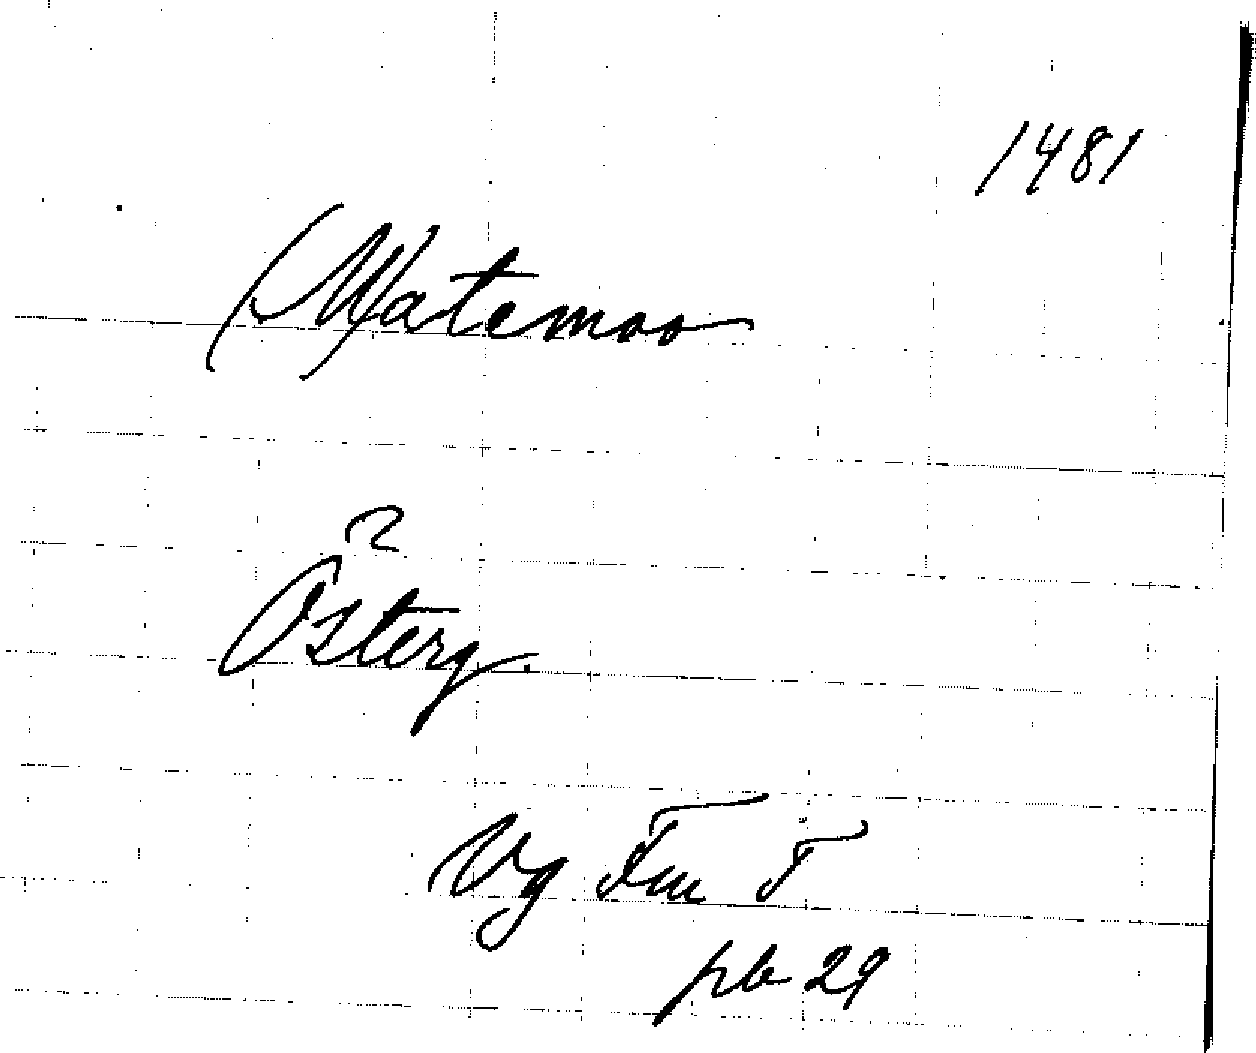 1481
(Matemoo
?
Österg.
Vg Fm T
pb 29